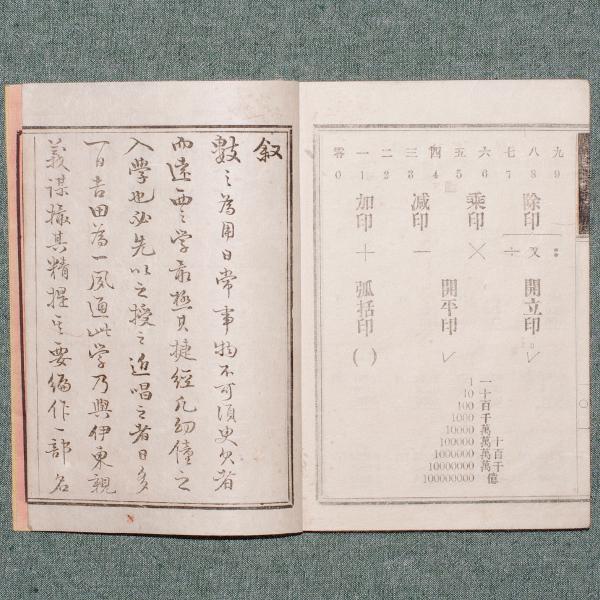 零 一 二 三 四 五 六 七 八 九
0 1 2 3 4 5 6 7 8 9
加印 减印 乘印 除印
＋ － × ÷ 又 :
弧括印 開平印 開立印
( ) √ ∛
1 一
10 十
100 百
1000 千
10000 萬
100000 十萬
1000000 百萬
10000000 千萬
100000000 億
叙
數之為用日常事物不可須臾欠者
而遠西之学最極其捷經凡幼僮之
入學也必先以之授之近唱之者日多
一日吉田為一夙通此学乃與伊東親
義謀撮其精提其要編作一部名